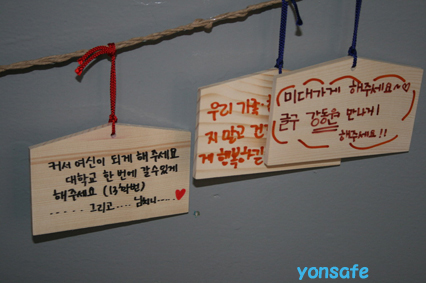 커서 여신이 되게 해주세요
대학교 한 번에 갈수있게
해주세요 (13학번)
..... 그리고 ....
우리 가족
지 말고 건
게 행복하길
미대가게 해주세요~♡
글구 강동원 만나게
해주세요!!
yonsafe